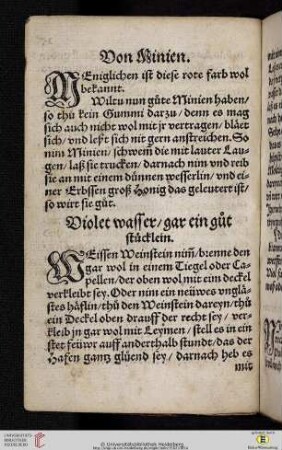 Von Minien.
MEniglichen ist diese rote farb wol
bekannt.
Wiltu nun gůte Minien haben/
so thů kein Gummi darzu/ denn es mag
sich auch nicht wol mit jr vertragen/ blaͤet
sich/ vnd leßt sich nit gern anstreichen. So
nim Minien/ schwem die mit lauter Lau-
gen/ laß sie trucken/ darnach nim vnd reib
sie an mit einem dünnen wesserlin/ vnd ei-
ner Erbssen groß Honig das geleutert ist/
so wirt sie gůt.
Violet wasser/ gar ein gůt
stücklein.
WEissen Weinstein nim̃/ brenne den
gar wol in einem Tiegel oder Ca-
pellen/ der oben wol mit eim deckel
verkleibt sey. Oder nim ein neüwes vnglå-
stes håflin/ thů den Weinstein dareyn/ thů
ein Deckel oben drauff der recht sey/ ver-
kleib jn gar wol mit Leymen/ stell es in ein
stet feüwr auff anderthalb stund/ das der
Hafen gantz glüend sey/ darnach heb es
mit
UNIVERSITÄTS
BIBLIOTHEK
HEIDELBERG
© Universitätsbibliothek Heidelberg